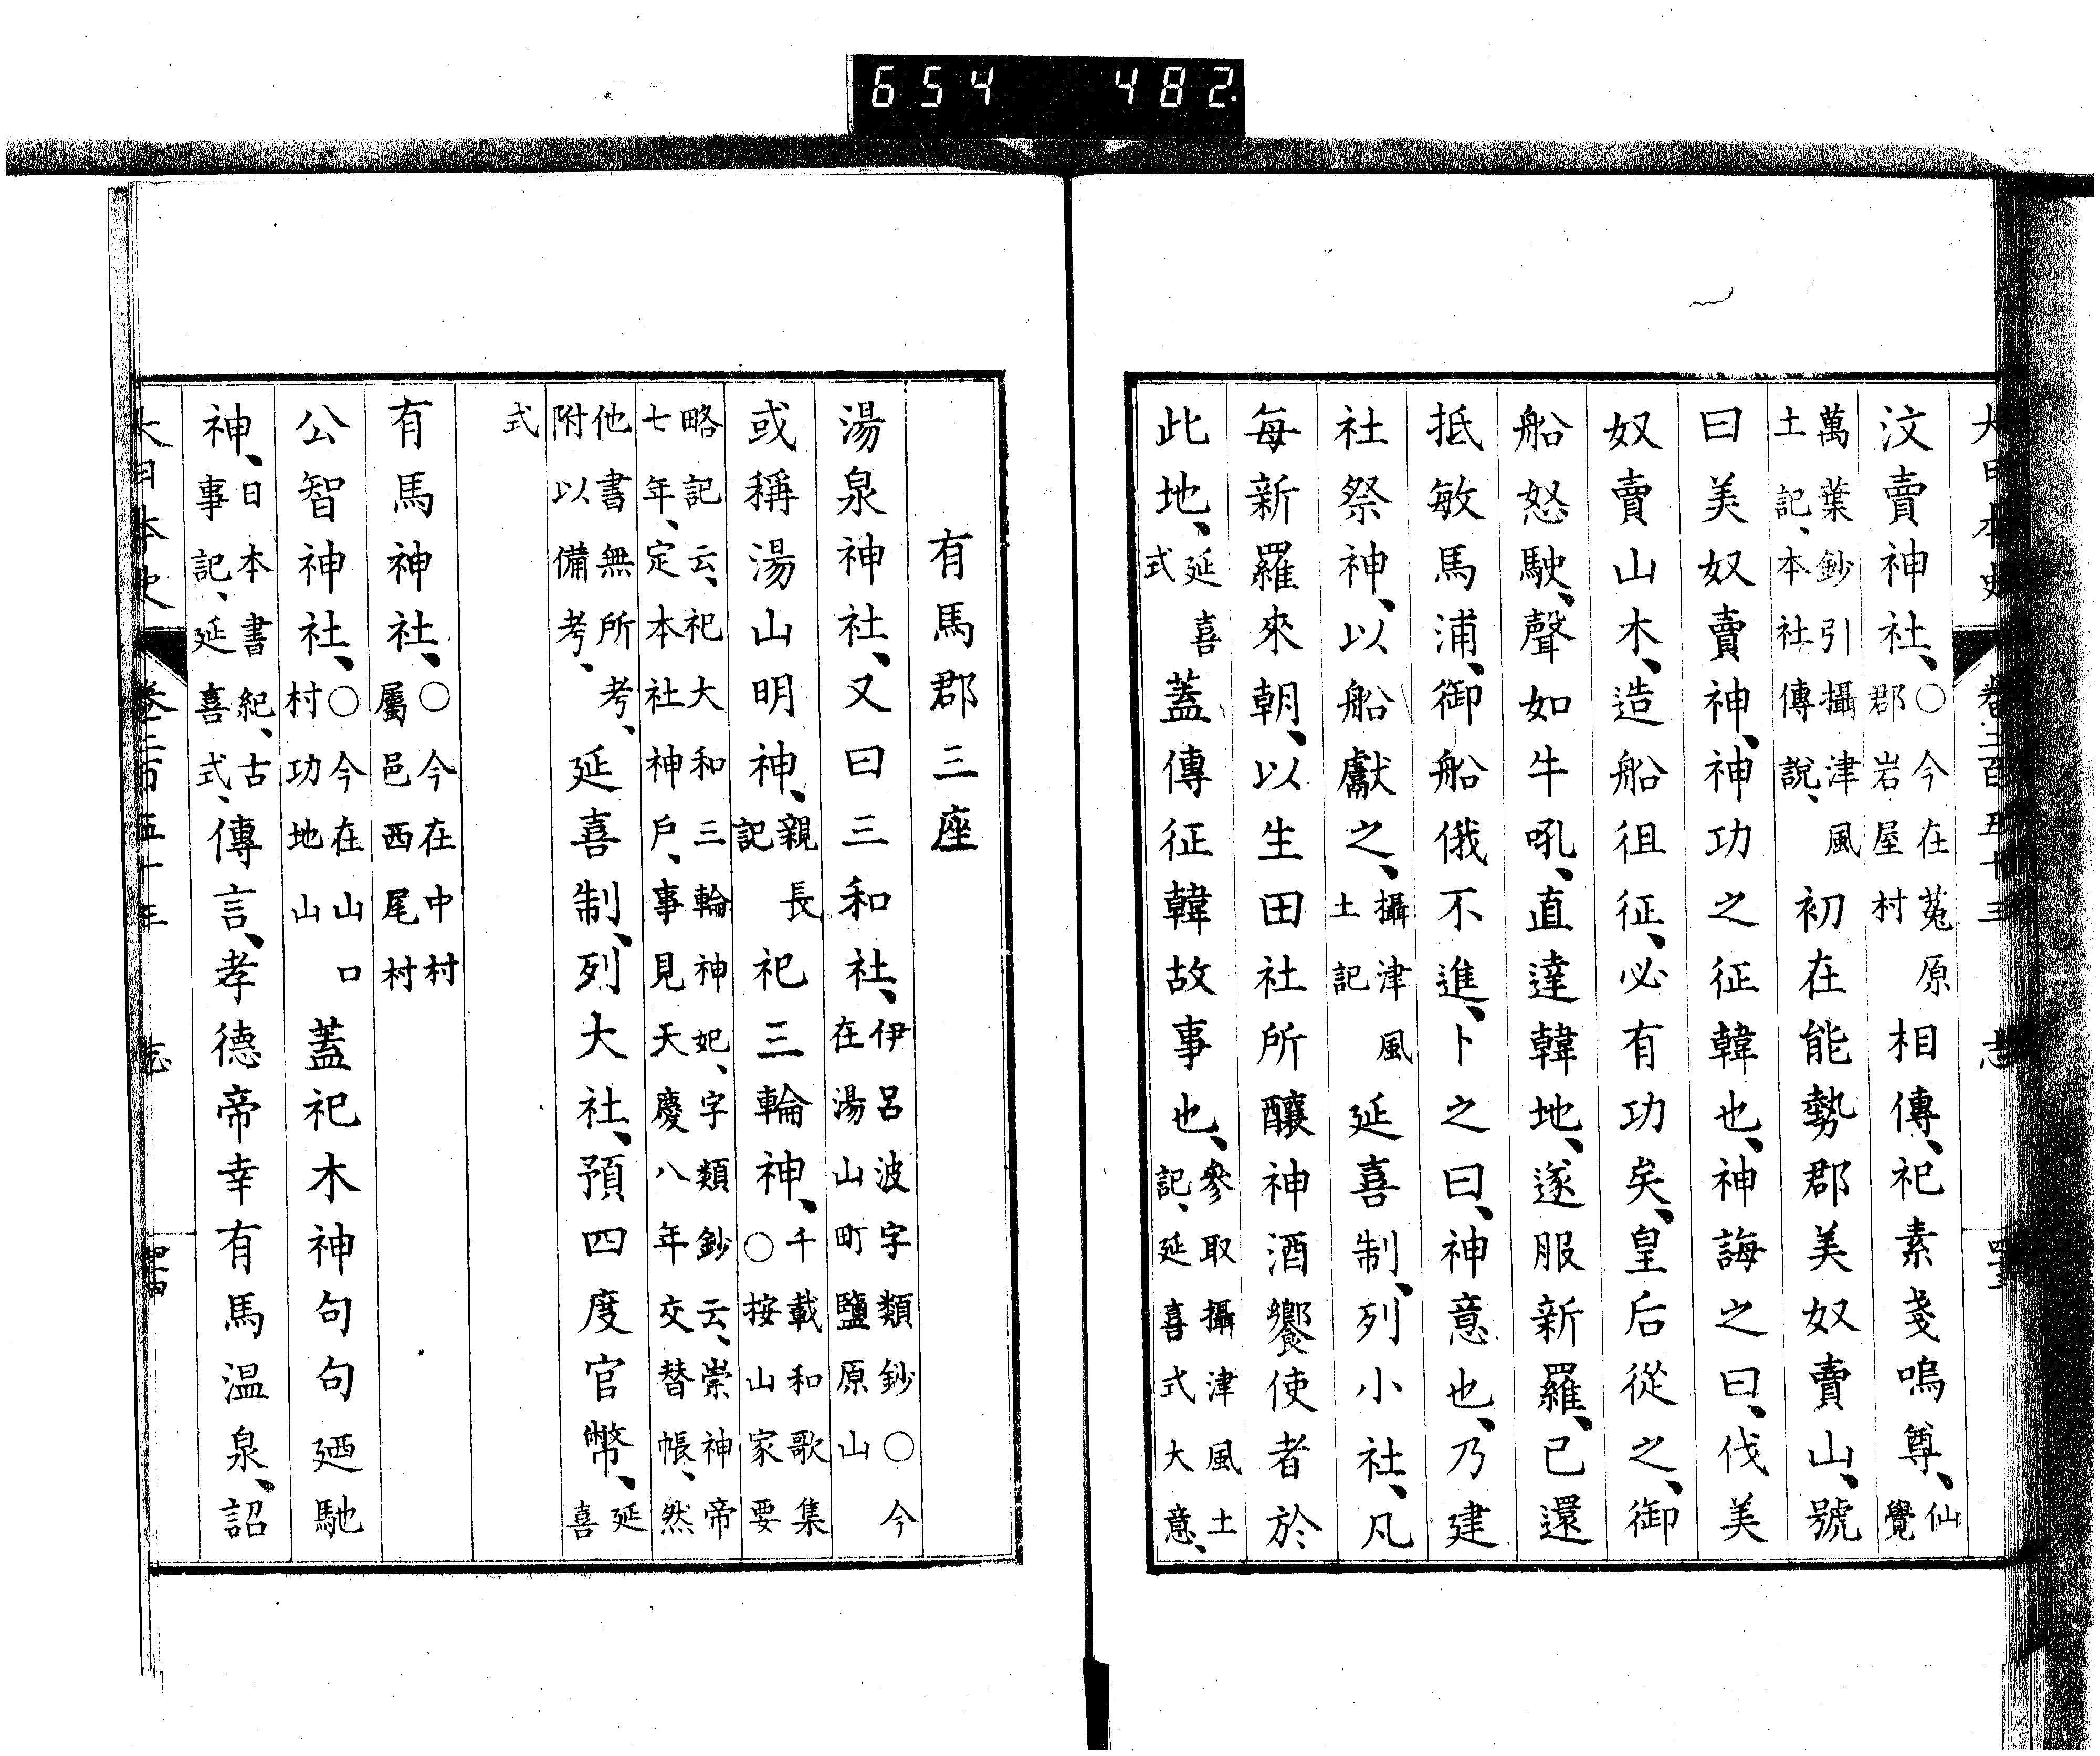 654 482
大日本史 卷二百五十三 志 四十三
汶賣神社、○今在菟原郡岩屋村相傳、祀素戔嗚尊、仙覺
萬葉鈔引攝津風土記、本社傳說、初在能勢郡美奴賣山、號
曰美奴賣神、神功之征韓也、神誨之曰、伐美
奴賣山木、造船徂征、必有功矣、皇后從之、御
船怒駛、聲如牛吼、直達韓地、遂服新羅、已還
抵敏馬浦、御船俄不進、卜之曰、神意也、乃建
社祭神、以船獻之、攝津風土記延喜制、列小社、凡
每新羅來朝、以生田社所釀神酒饗使者於
此地、延喜式蓋傳征韓故事也、參取攝津風土記、延喜式大意、
有馬郡三座
湯泉神社、又曰三和社、伊呂波字類鈔○今在湯山町鹽原山
或稱湯山明神、親長記祀三輪神、千載和歌集○按山家要
略記云、祀大和三輪神妃、字類鈔云、崇神帝七年、定本社神戶、事見天慶八年交替帳、然
他書無所考、附以備考、延喜制、列大社、預四度官幣、延喜
式
有馬神社、○今在中村屬邑西尾村
公智神社、○今在山口村功地山蓋祀木神句句廼馳
神、日本書紀、古事記、延喜式、傳言、孝德帝幸有馬温泉、詔
大日本史 卷二百五十三 志 四十四